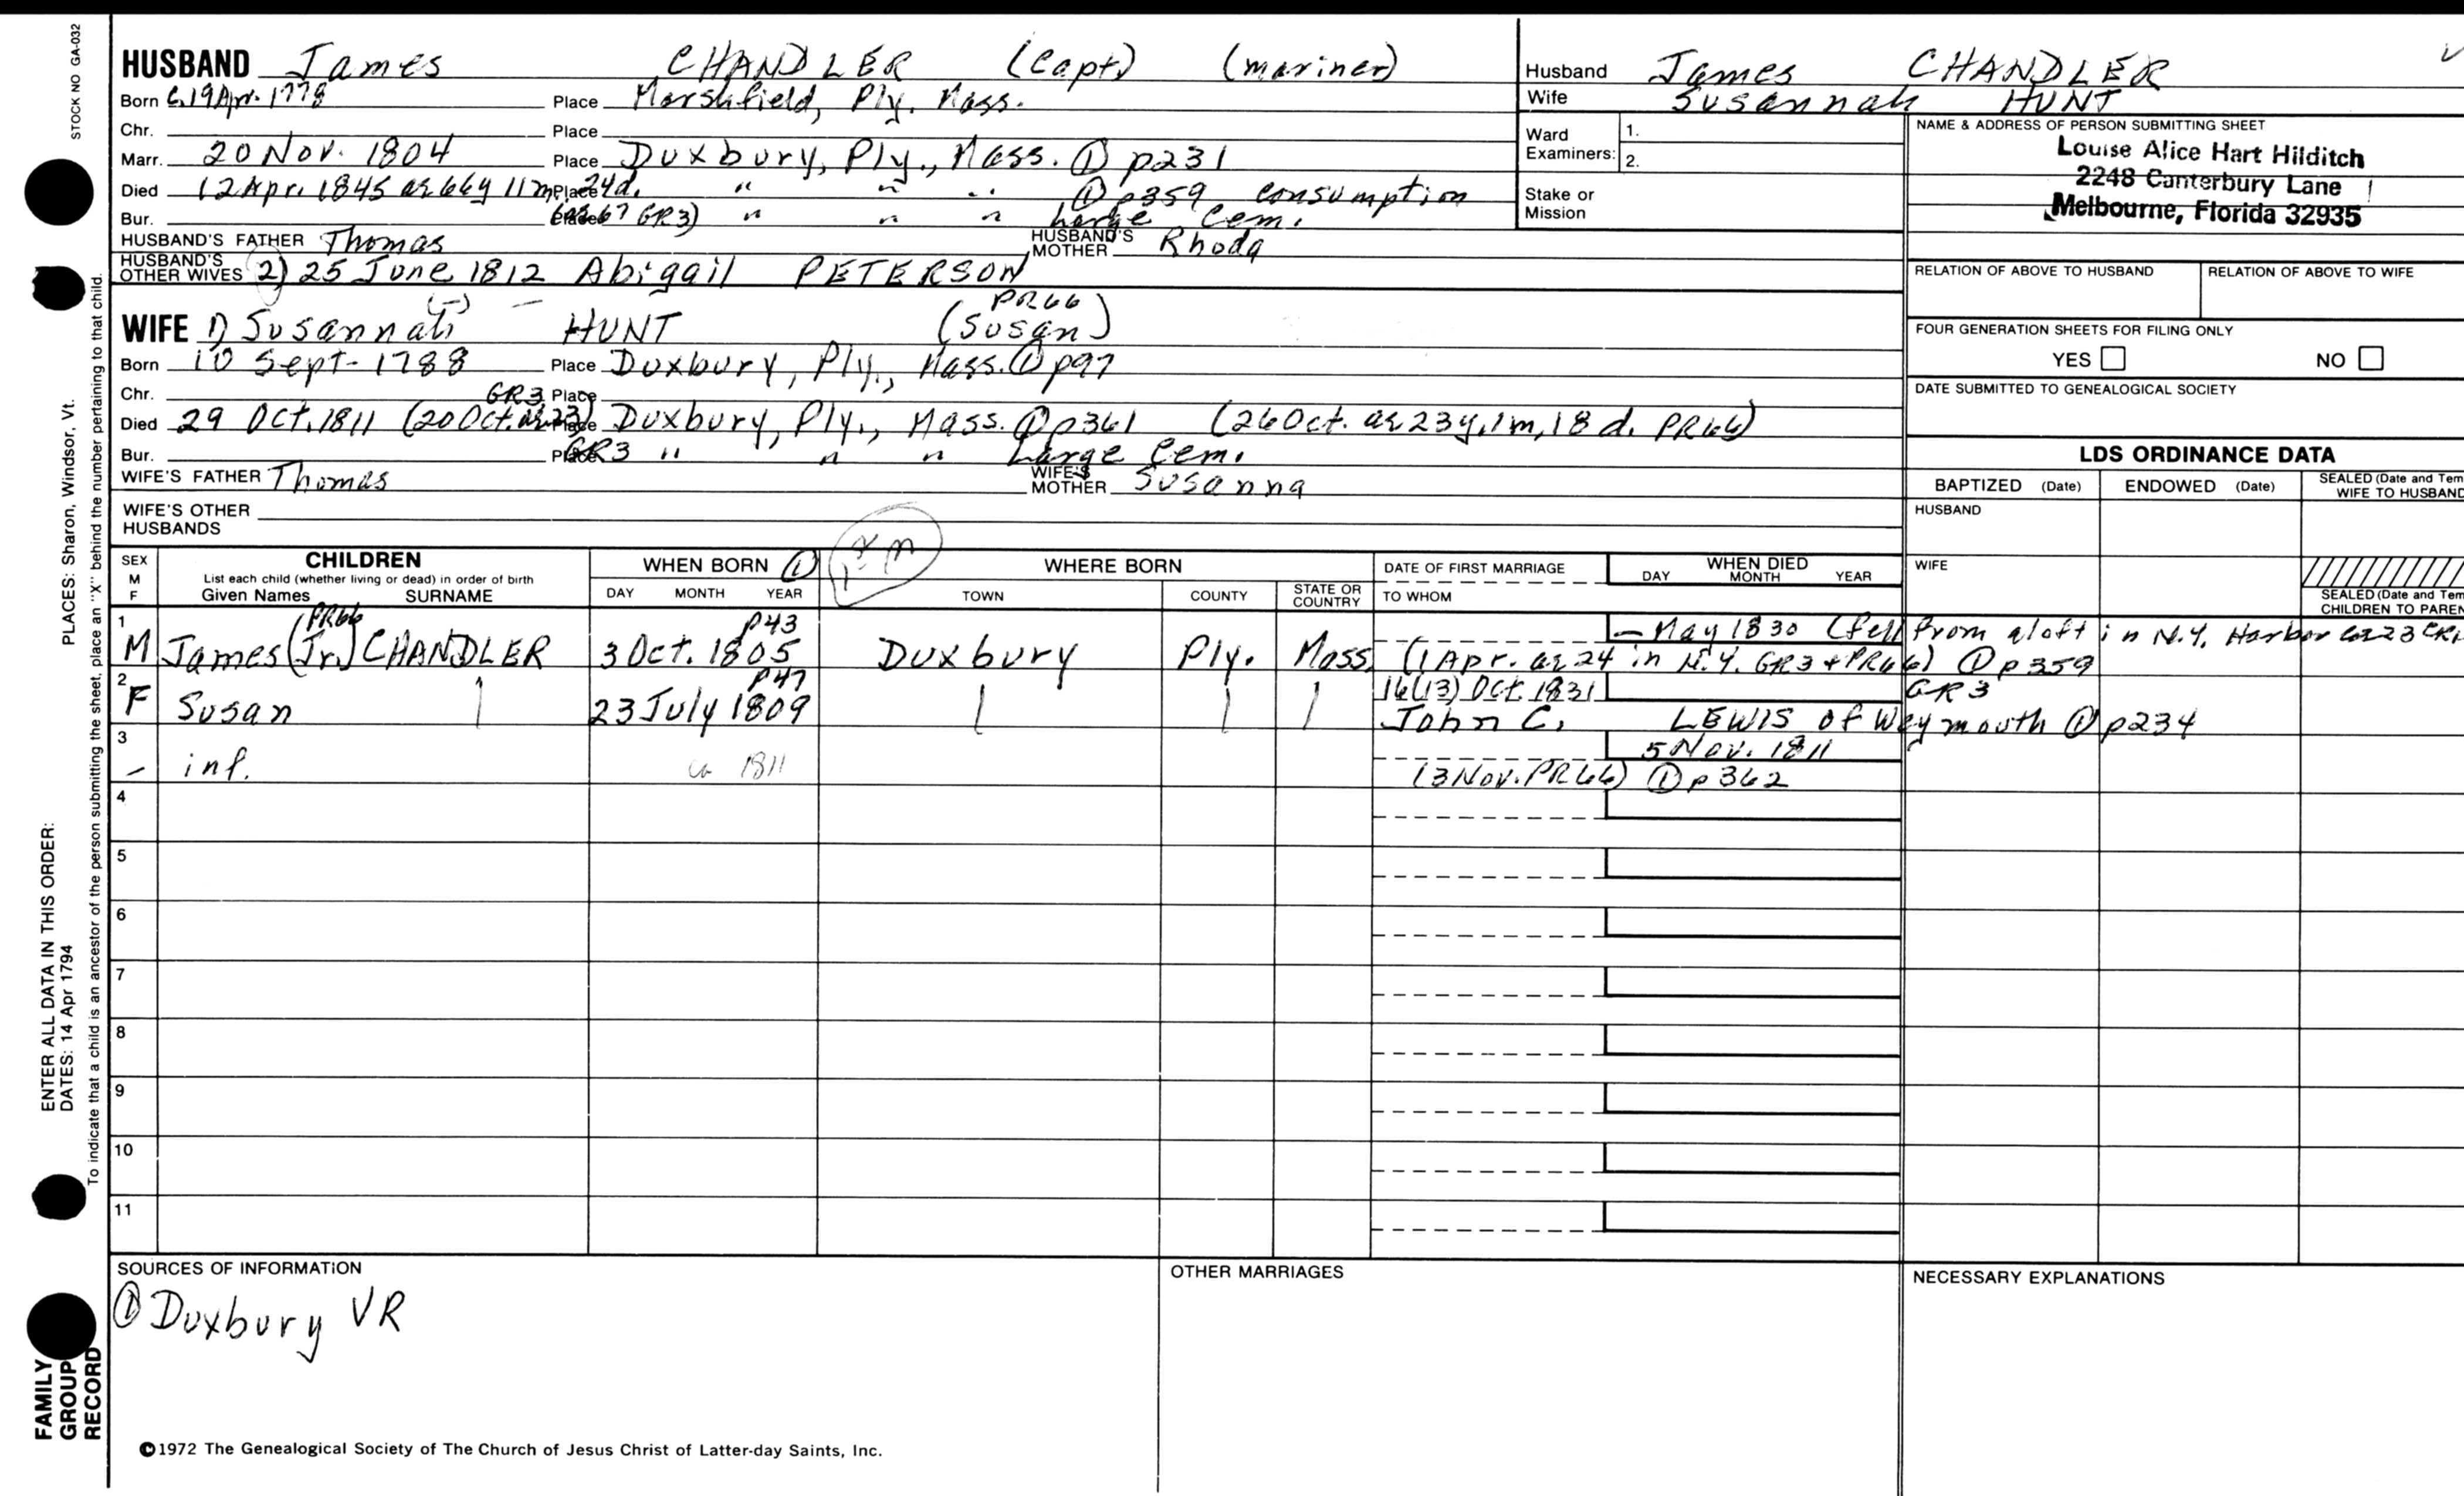 STOCK NO GA-032
HUSBAND James CHANDLER (Capt) (mariner)
Born C.19 Apr. 1778 Place Marshfield, Ply. Mass.
Chr. Place
Marr. 20 Nov. 1804 Place Duxbury, Ply., Mass. ① p231
Died 12 Apr. 1845 ae 66y 11m 24d. Place " " " ① p359 consumption
Bur. Place (ae 67 GR3) " " " Large Cem.
HUSBAND'S FATHER Thomas HUSBAND'S MOTHER Rhoda
HUSBAND'S OTHER WIVES 2) 25 June 1812 Abigail PETERSON
(-) PR66
WIFE 1) Susannah HUNT (Susan)
Born 10 Sept. 1788 Place Duxbury, Ply., Mass. ① p97
Chr. Place
GR3
Died 29 Oct. 1811 (20 Oct. ae 23) Place Duxbury, Ply., Mass. ① p361 (26 Oct. ae 23y, 1m, 18d. PR66)
Bur. Place GR3 " " " Large Cem.
WIFE'S FATHER Thomas WIFE'S MOTHER Susanna
WIFE'S OTHER HUSBANDS
Husband James CHANDLER
Wife Susannah HUNT
Ward Examiners: 1.
2.
Stake or Mission
NAME & ADDRESS OF PERSON SUBMITTING SHEET
Louise Alice Hart Hilditch
2248 Canterbury Lane
Melbourne, Florida 32935
RELATION OF ABOVE TO HUSBAND RELATION OF ABOVE TO WIFE
FOUR GENERATION SHEETS FOR FILING ONLY
YES NO
DATE SUBMITTED TO GENEALOGICAL SOCIETY
LDS ORDINANCE DATA
BAPTIZED (Date) ENDOWED (Date) SEALED (Date and Tem
WIFE TO HUSBAND
HUSBAND
WIFE
SEALED (Date and Tem
CHILDREN TO PAREN
SEX M F
CHILDREN
List each child (whether living or dead) in order of birth
Given Names SURNAME
WHEN BORN ①
DAY MONTH YEAR
WHERE BORN
TOWN COUNTY STATE OR COUNTRY
DATE OF FIRST MARRIAGE
TO WHOM
WHEN DIED
DAY MONTH YEAR
1 PR66 p43 – May 1830 (fell from aloft in N.Y. Harbor ae 23
M James (Jr.) CHANDLER 3 Oct. 1805 Duxbury Ply. Mass. (1 Apr. ae 24 in N.Y. GR3 + PR66) ① p359
2 p47 16(13) Oct. 1831 GR3
F Susan 23 July 1809 John C. LEWIS of Weymouth ① p234
3 5 Nov. 1811
– inf. ca 1811 (3 Nov. PR66) ① p362
4
5
6
7
8
9
10
11
SOURCES OF INFORMATION
① Duxbury VR
OTHER MARRIAGES
NECESSARY EXPLANATIONS
©1972 The Genealogical Society of The Church of Jesus Christ of Latter-day Saints, Inc.
PLACES: Sharon, Windsor, Vt.
To indicate that a child is an ancestor of the person submitting the sheet, place an "X" behind the number pertaining to that child.
ENTER ALL DATA IN THIS ORDER:
DATES: 14 Apr 1794
FAMILY
GROUP
RECORD